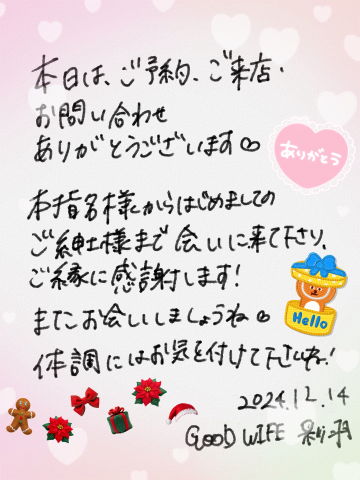 本日は、ご予約、ご来店・
お問い合わせ
ありがとうございます♡
ありがとう
本指名様からはじめましての
ご紳士様まで会いに来て下さり、
ご縁に感謝します!
Hello
またお会いしましょうね♡
体調にはお気を付けて下さいね!
2024.12.14
GOOD WIFE